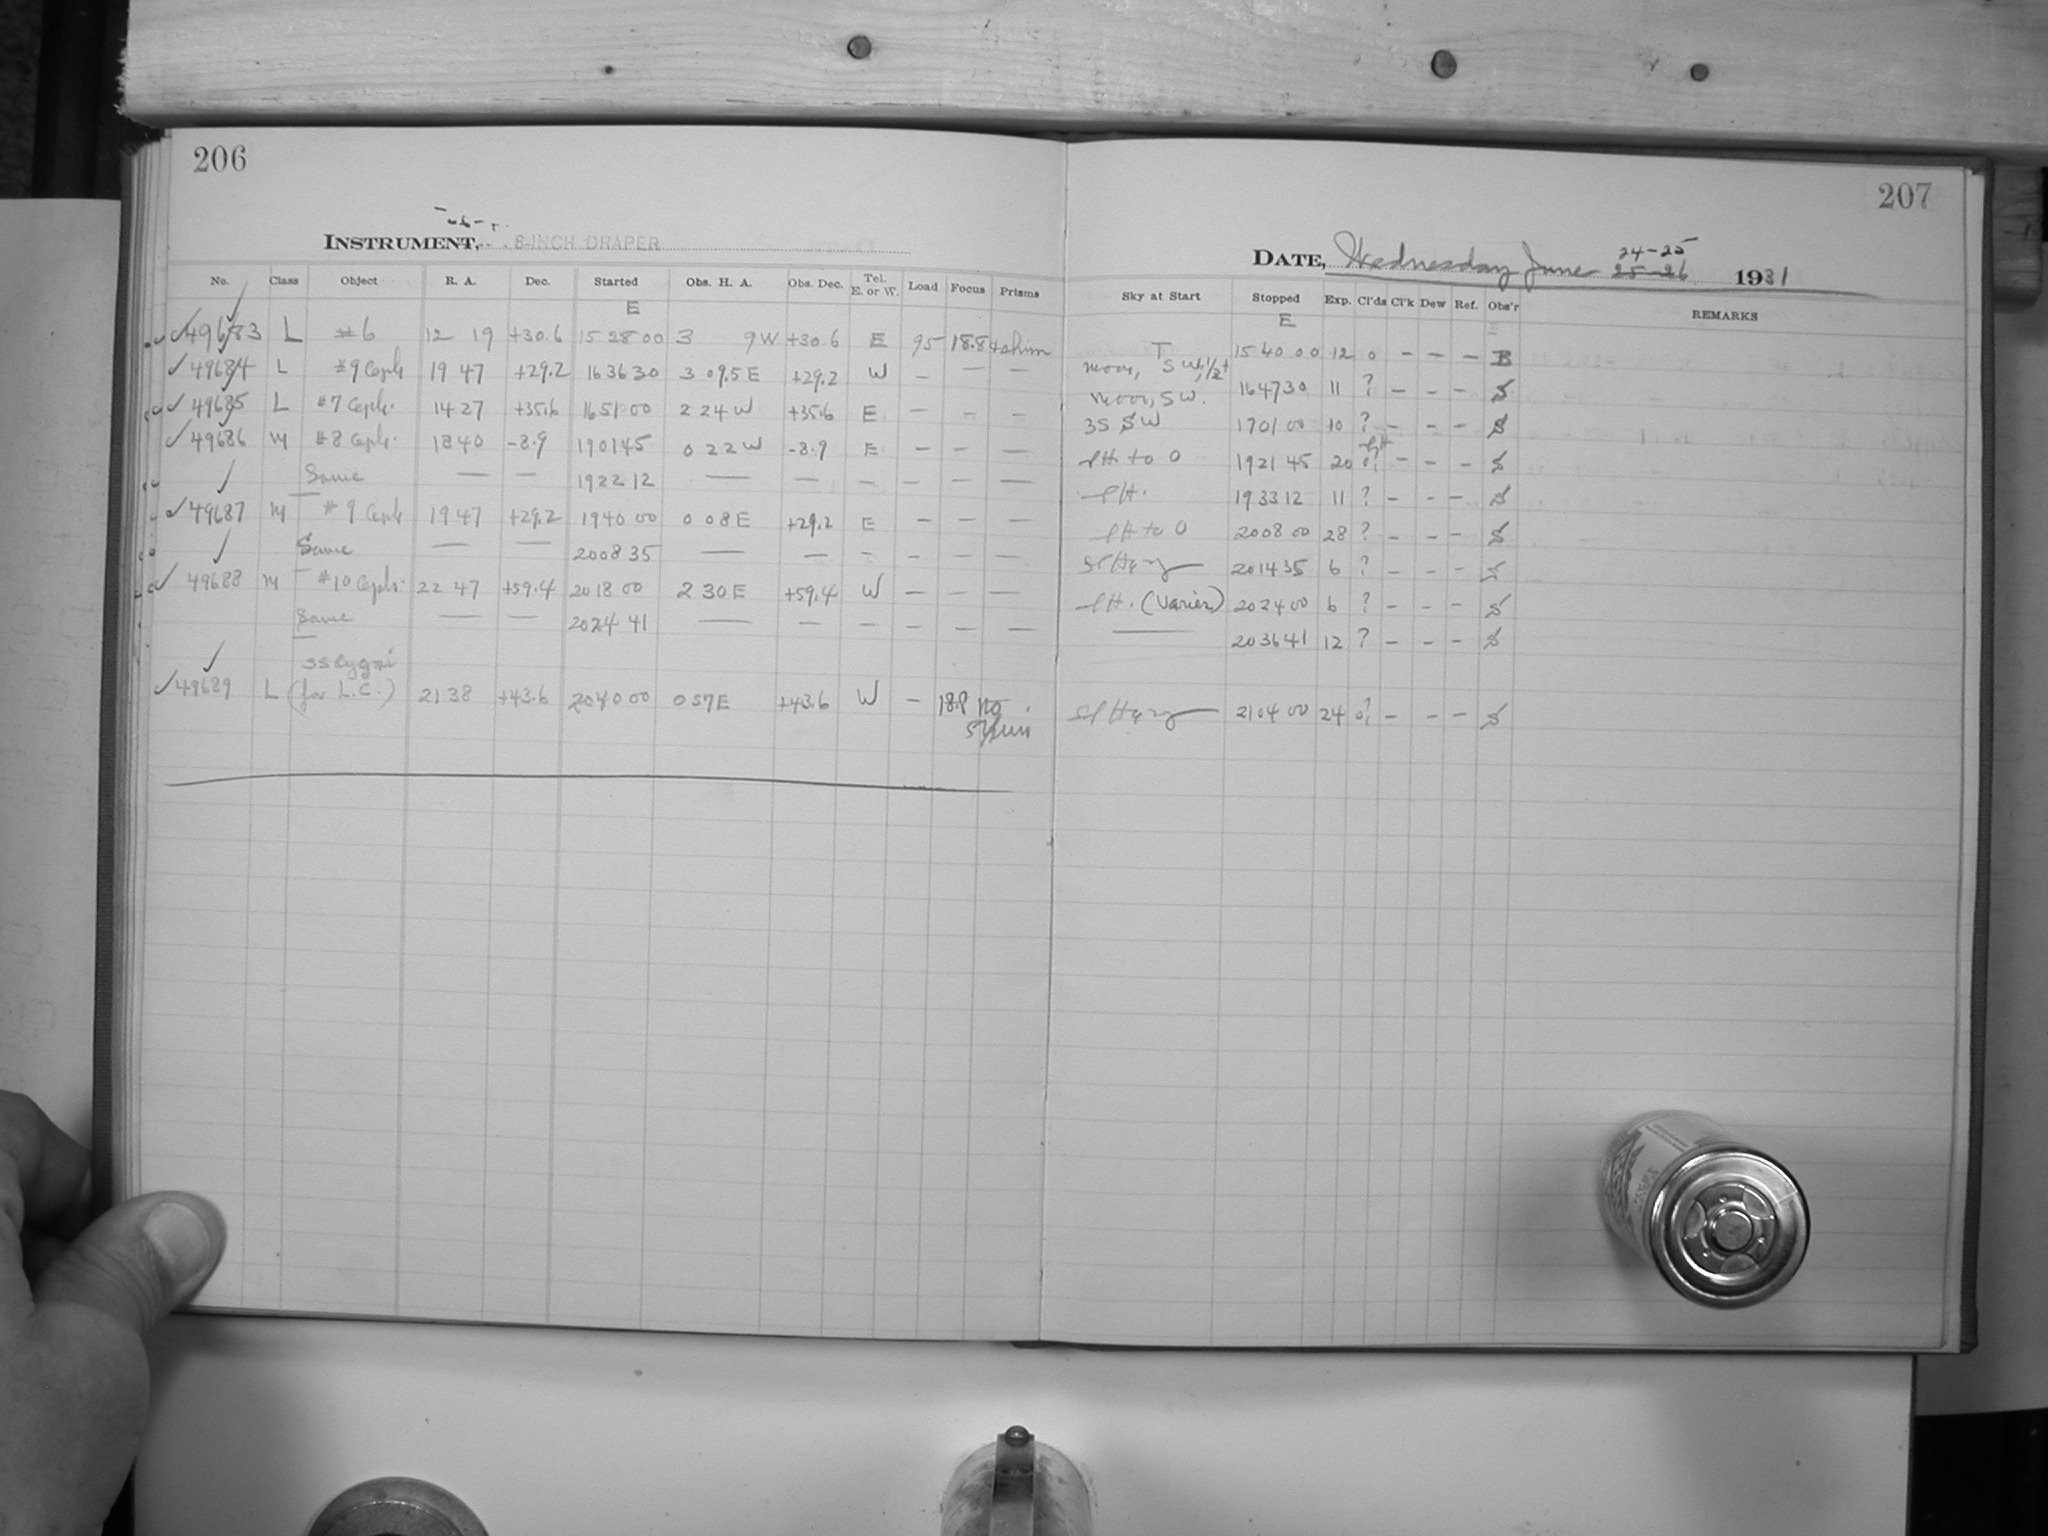 206
INSTRUMENT, 8-INCH DRAPER
No. Class Object R. A. Dec. Started Obs. H. A. Obs. Dec. Tel. E. or W. Load Focus Prisms
E
49683 L #6 12 19 +30.6 15 28 00 3 9 W +30.6 E 95 18.8 + shim
49684 L #9 Ceph 19 47 +29.2 16 36 30 3 09.5 E +29.2 W - - -
49685 L #7 Ceph. 14 27 +35.6 16 51 00 2 24 W +35.6 E - - -
49686 M #8 Ceph. 18 40 -8.9 19 01 45 0 22 W -8.9 E - - -
Same - - 19 22 12 - - - - - -
49687 M #9 Ceph 19 47 +29.2 19 40 00 0 08 E +29.2 E - - -
Same - - 20 08 35 - - - - - -
49688 M #10 Ceph. 22 47 +59.4 20 18 00 2 30 E +59.4 W - - -
Same - - 20 24 41 - - - - - -
SS Cygni
49689 L (for L.C.) 21 38 +43.6 20 40 00 0 57 E +43.6 W - 18.8 no
shim
207
DATE, Wednesday June 24-25 25-26 1931
Sky at Start Stopped Exp. Cl'ds Cl'k Dew Ref. Obs'r REMARKS
E
Moon, SW, 1/2+ 15 40 00 12 0 - - - B
Moon, SW. 16 47 30 11 ? - - - S
SW 17 01 00 10 ? - - - S
to 0 19 21 45 20 - - - S
19 33 12 11 ? - - - S
to 0 20 08 00 28 ? - - - S
Sl Hazy 20 14 35 6 ? - - - S
(Varies) 20 24 00 6 ? - - - S
- 20 36 41 12 ? - - - S
Sl Hazy 21 04 00 24 0? - - - S